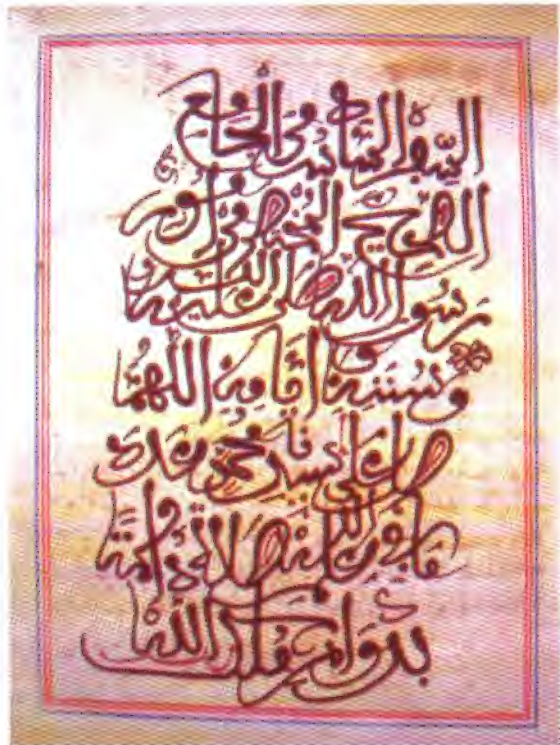 السفر السادس من الجامع
الصحيح المختصر من امور
رسول الله صلى الله عليه
وسننه وايامه اللهم
صل على سيدنا محمد عدد
ما في علم الله صلاة دائمة
بدوام ملك الله